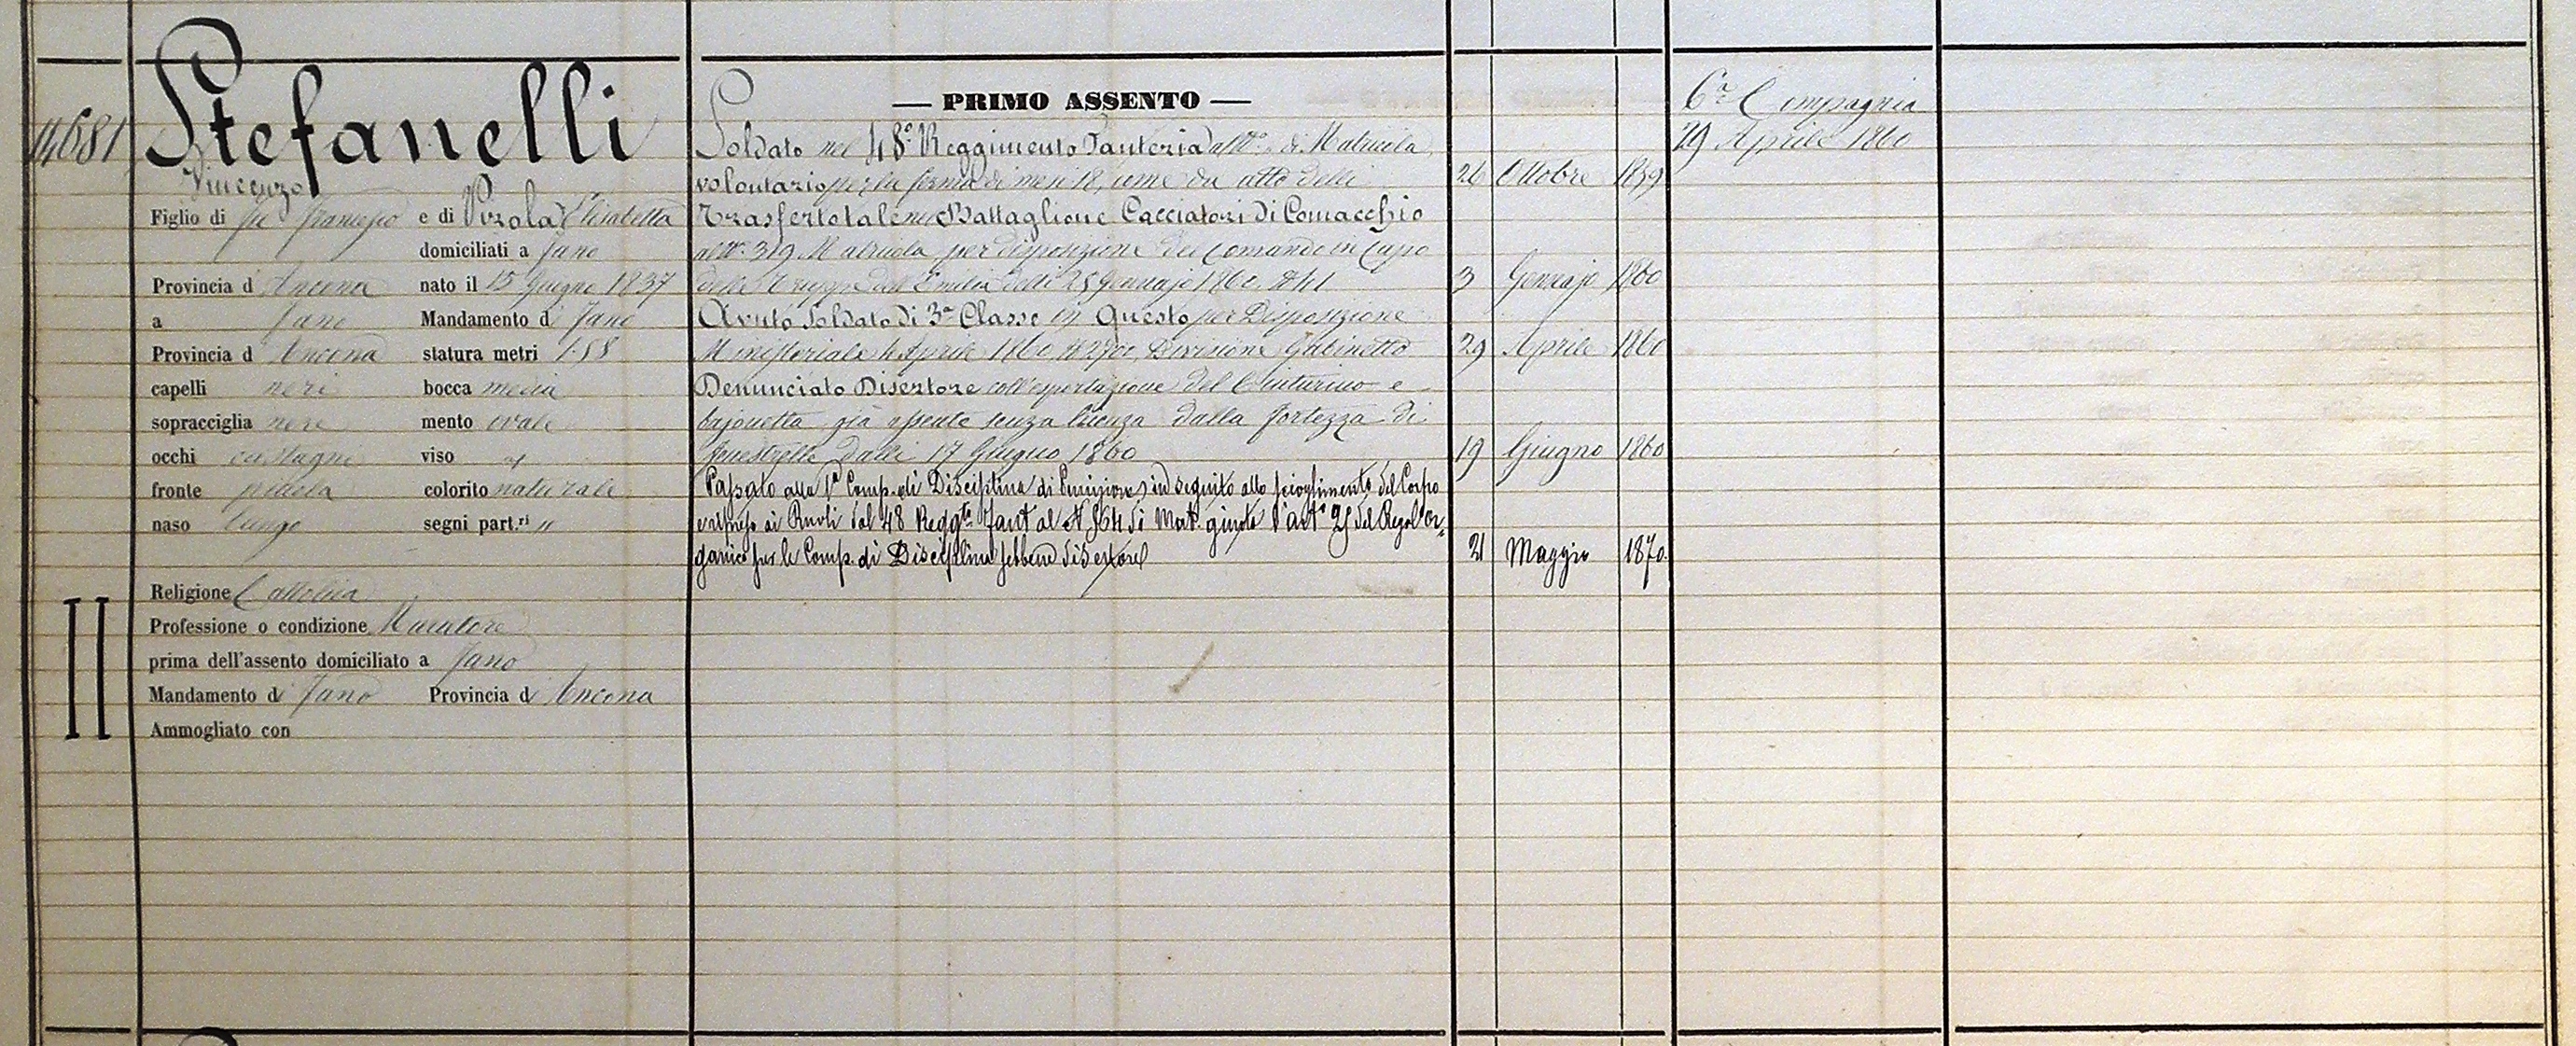 14681
Stefanelli
Vincenzo
Figlio di fu Francesco e di Pizola Elisabetta
domiciliati a Fano
Provincia d Ancona nato il 15 Giugno 1837
a Fano Mandamento di Fano
Provincia d Ancona statura metri 1.58
capelli neri bocca media
sopracciglia nere mento ovale
occhi castagni viso
fronte piccola colorito naturale
naso lungo segni part.ri "
Religione Cattolica
Professione o condizione Muratore
prima dell'assento domiciliato a Fano
Mandamento di Fano Provincia d Ancona
Ammogliato con
II
— PRIMO ASSENTO —
Soldato nel 48° Reggimento Fanteria al N° di Matricola
volontario per la ferma di mesi 18, come da atto delli 26 Ottobre 1859
Trasferto tale nel Battaglione Cacciatori di Comacchio
al N° 319 Matricola per disposizione del Comando in Capo
delle Truppe dell'Emilia delli 25 Gennajo 1860 N° 41 3 Gennajo 1860
Avuto Soldato di 3a Classe in Questo per Disposizione
Ministeriale 4 Aprile 1860 N° 2700, Divisione Gabinetto 29 Aprile 1860
Denunciato Disertore coll'esportazione del Cinturino e
bajonetta già assente senza licenza dalla fortezza di
Fenestrelle dalli 17 Giugno 1860 19 Giugno 1860
Passato alla 1a Comp. di Disciplina di Punizione in seguito allo scioglimento del Corpo
e ripreso ai Ruoli dal 48 Reggto Fant al N 864 di Mat. giusta l'art° 25 del Regol° or-
ganico per le Comp. di Disciplina sebbene disertore 21 Maggio 1870.
6a Compagnia
29 Aprile 1860